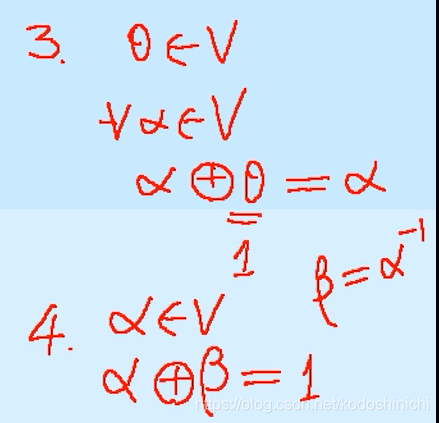 3. θ∈V
∀α∈V
α⊕θ=α
1
β=α⁻¹
4. α∈V
α⊕β=1
https://blog.csdn.net/kodoshinichi